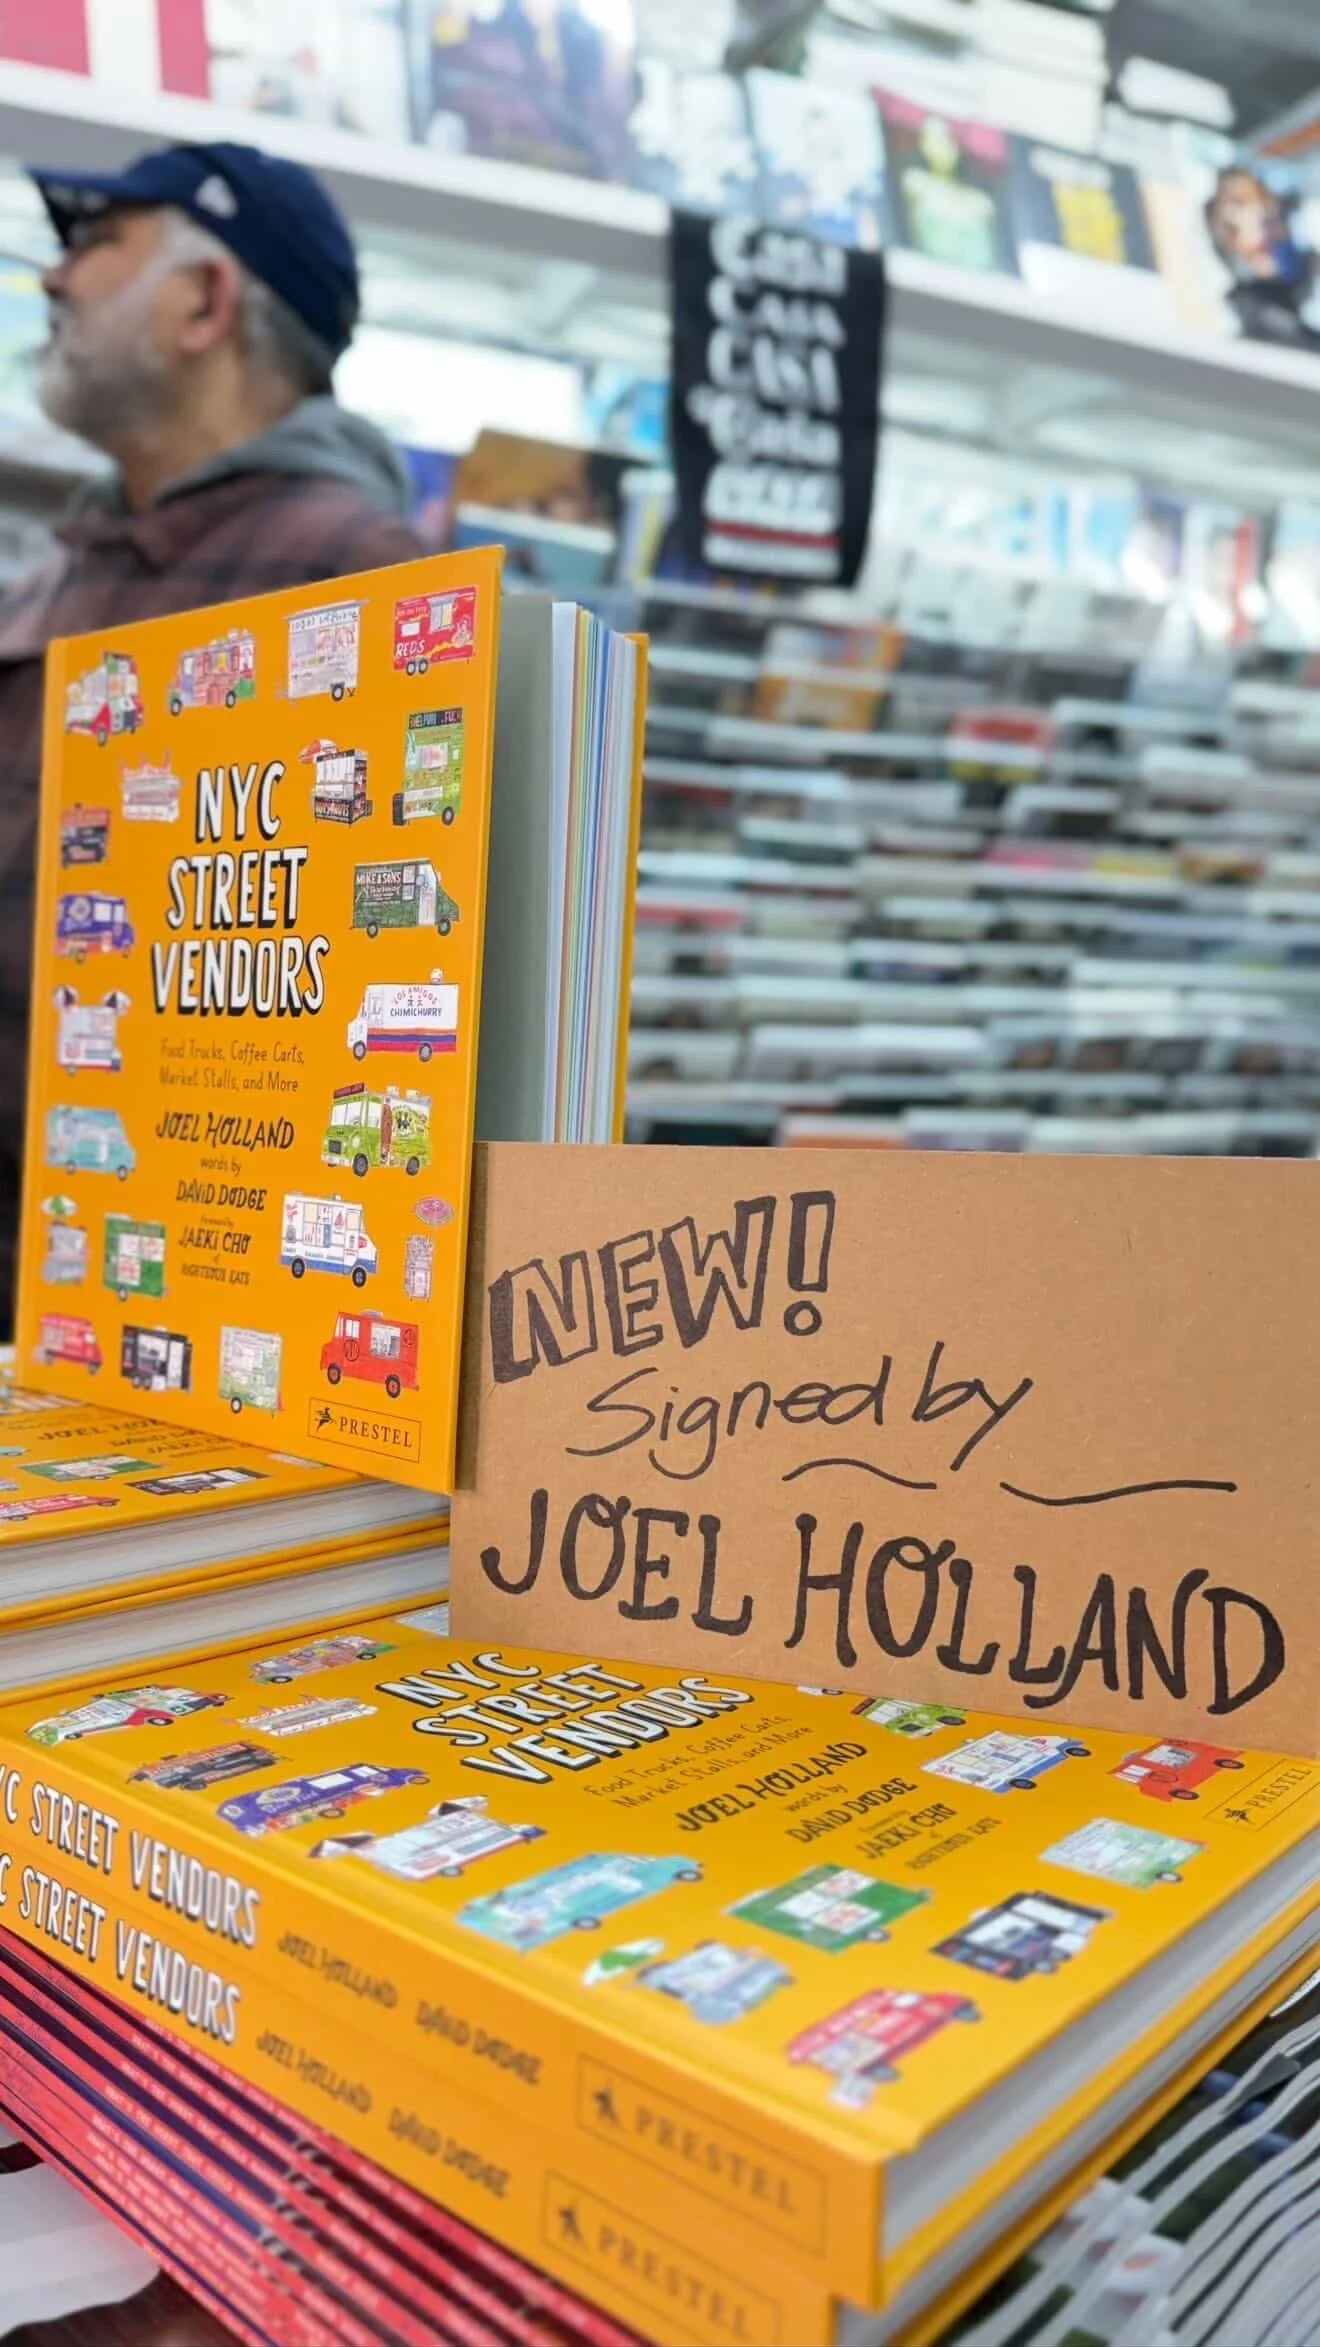 Casa
REDS
MIKE & SONS
LOS AMIGOS
CHIMICHURRY
NYC
STREET
VENDORS
Food Trucks, Coffee Carts,
Market Stalls, and More
JOEL HOLLAND
words by
DAVID DODGE
foreword by
JAEKI CHO
of
RIGHTEOUS EATS
PRESTEL
NEW!
Signed by
JOEL HOLLAND
JOEL HOLLAND
DAVID DODGE
NYC
STREET
VENDORS
Food Trucks, Coffee Carts,
Market Stalls, and More
JOEL HOLLAND
words by
DAVID DODGE
foreword by
JAEKI CHO
of
RIGHTEOUS EATS
PRESTEL
YC STREET VENDORS JOEL HOLLAND DAVID DODGE PRESTEL
C STREET VENDORS JOEL HOLLAND DAVID DODGE PRESTEL